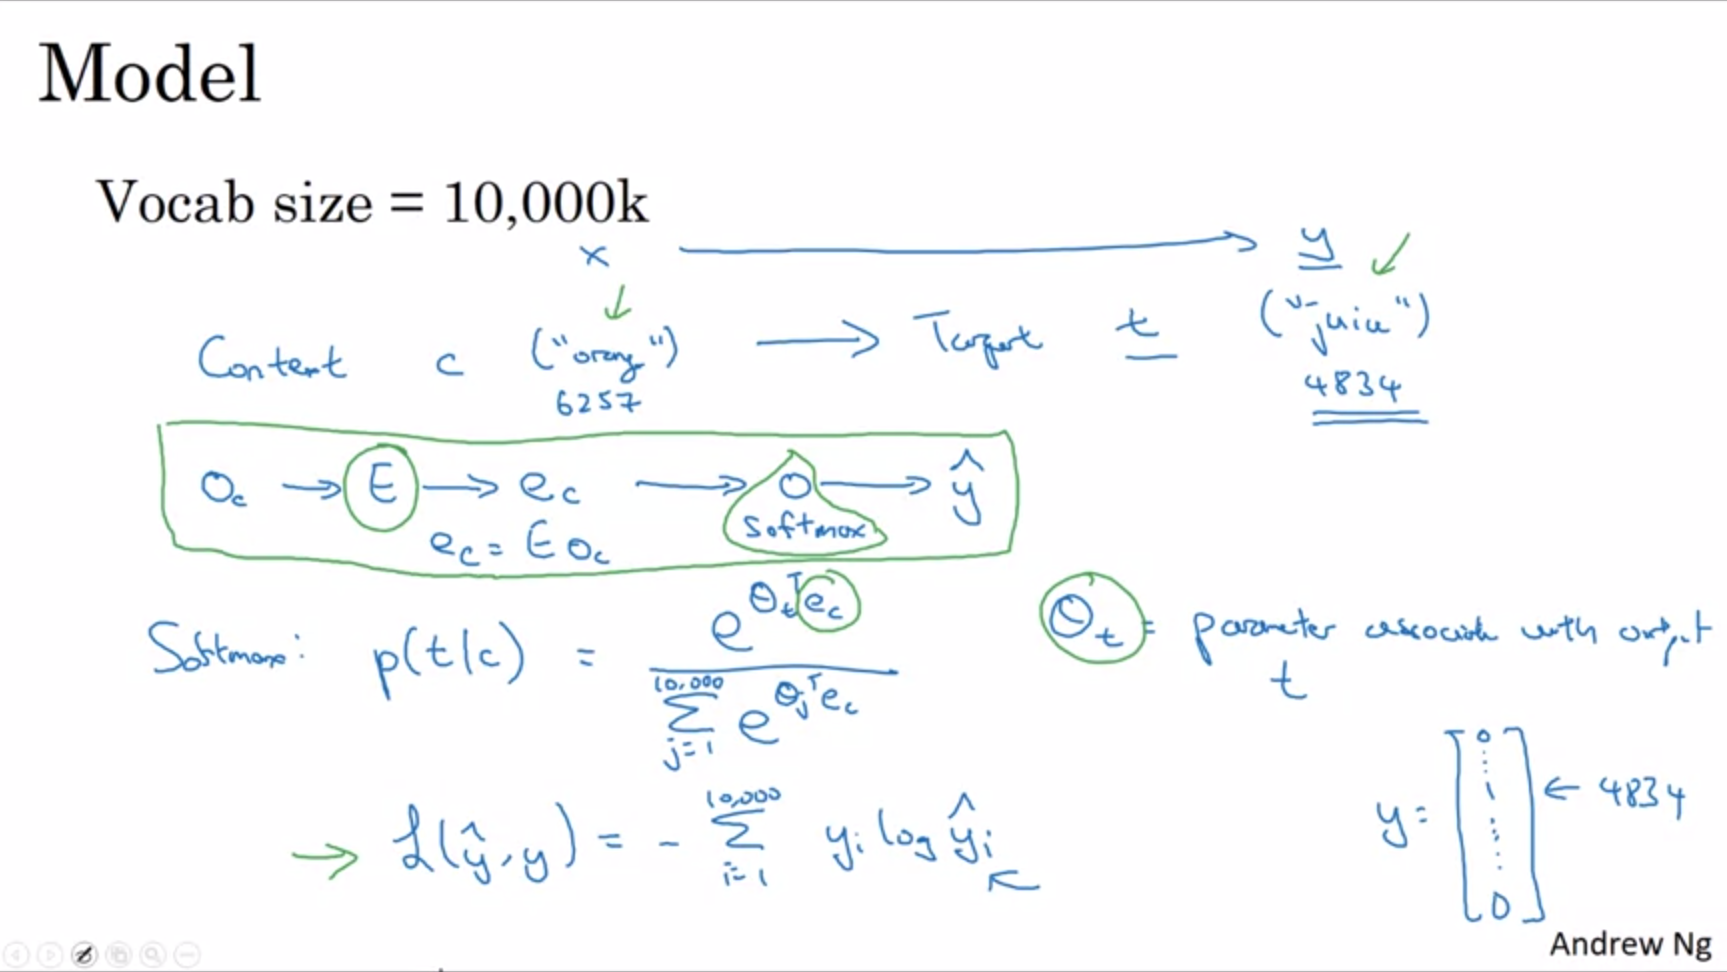 Model
Vocab size = 10,000k
x → y
Content c ("orang") → Target t ("juice")
6257 4834
O_c → E → e_c → O → ŷ
softmax
e_c = E O_c
Softmax: p(t|c) = e^{θ_t^T e_c} / Σ_{j=1}^{10,000} e^{θ_j^T e_c}
θ_t = parameter associate with output
t
y = [0 ⋮ 1 ⋮ 0] ← 4834
→ ℒ(ŷ, y) = - Σ_{i=1}^{10,000} y_i log ŷ_i
Andrew Ng